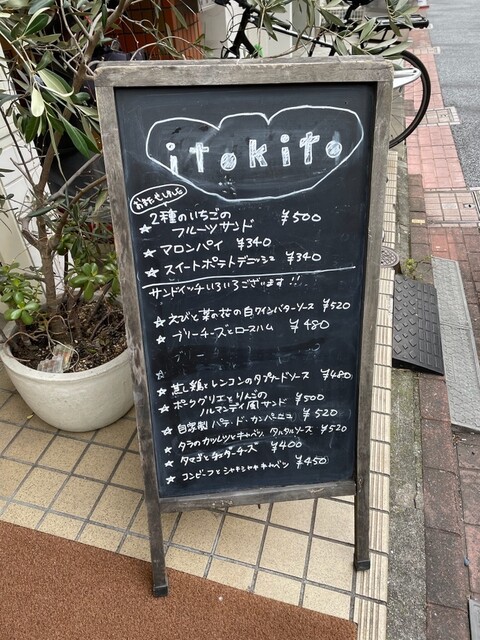 itokito
お待たせしました
★ 2種のいちごの
フルーツサンド ¥500
★ マロンパイ ¥340
★ スイートポテトデニッシュ ¥340
サンドイッチいろいろございます!!
★ えびと菜の花の白ワインバターソース ¥520
★ ブリーチーズとロースハム ¥480
★ 蒸し鶏とレンコンのタプナードソース ¥480
★ ポークグリエとりんごの
ノルマンディ風サンド ¥500
★ 自家製パテ・ド・カンパーニュ ¥520
★ タラのカツレツとキャベツ、タルタルソース ¥520
★ タマゴとチェダーチーズ ¥400
★ コンビーフとシャキシャキキャベツ ¥450